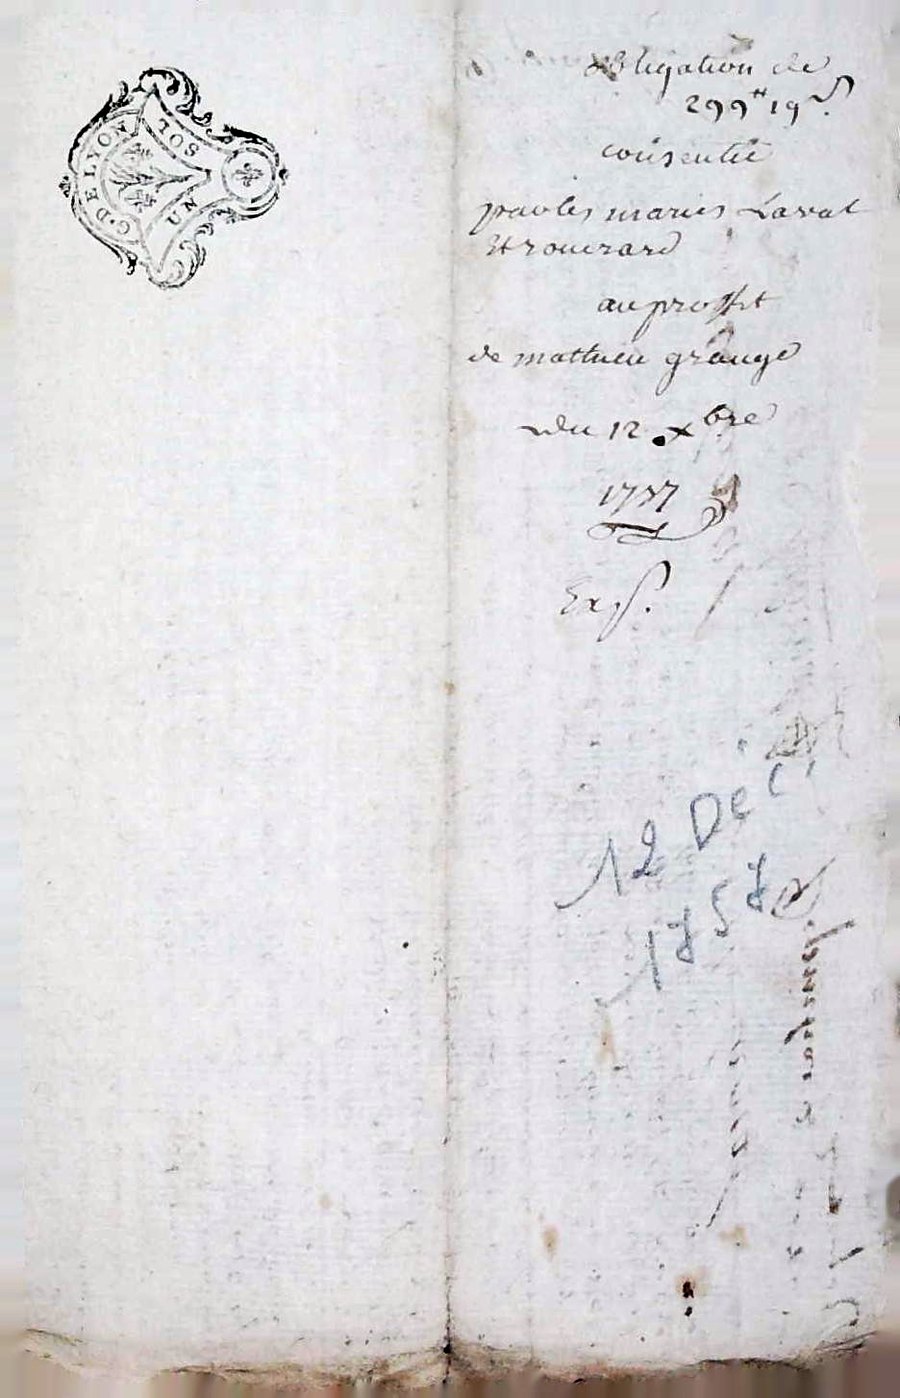 G. DE LYON
UN SOL
obligation de
299# 19 s.
consentie
par les mariés Laval
Et rouerard
au profit
de mathieu grange
du 12 xbre
1757
Exp.
12 Dec.
1757